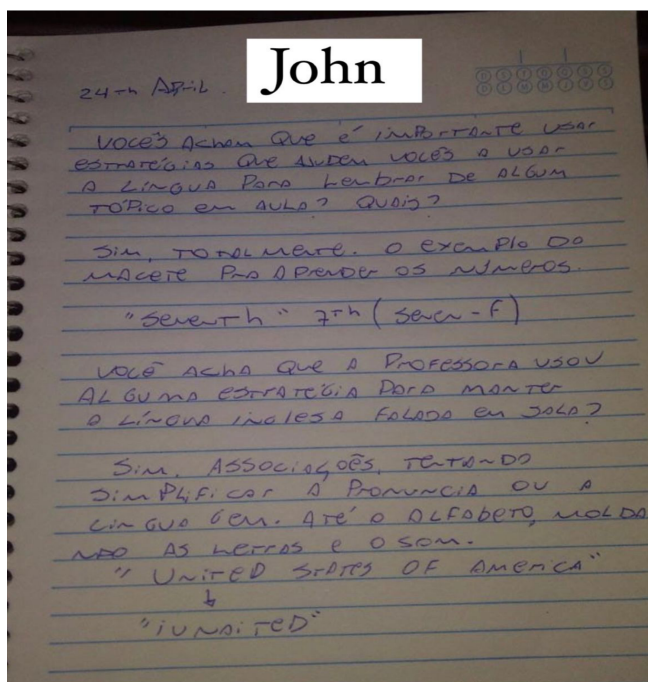 John
24th April.
D S T Q Q S S
D L M M J V S
VOCÊS ACHAM QUE É IMPORTANTE USAR
ESTRATÉGIAS QUE AJUDEM VOCÊS A USAR
A LÍNGUA PARA LEMBRAR DE ALGUM
TÓPICO EM AULA? QUAIS?
SIM, TOTALMENTE. O EXEMPLO DO
MACETE PRA APRENDER OS NÚMEROS.
"SEVENTH" 7th (SEVEN-F)
VOCÊ ACHA QUE A PROFESSORA USOU
ALGUMA ESTRATÉGIA PARA MANTER
A LÍNGUA INGLESA FALADA EM SALA?
SIM. ASSOCIAÇÕES, TENTANDO
SIMPLIFICAR A PRONUNCIA OU A
LINGUAGEM. ATÉ O ALFABETO, MOLDA
NDO AS LETRAS E O SOM.
"UNITED STATES OF AMERICA"
↓
"IUNAITED"